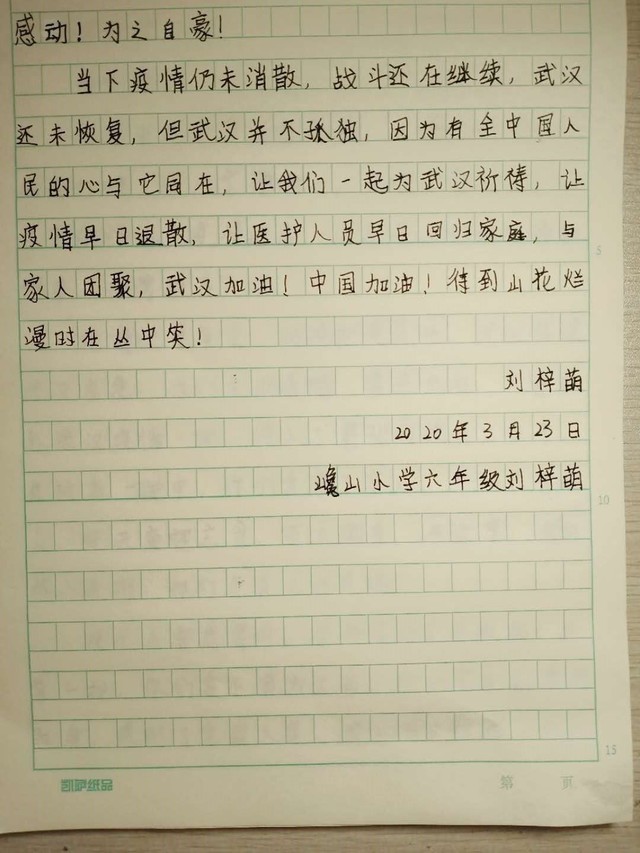 感动！为之自豪！
当下疫情仍未消散，战斗还在继续，武汉
还未恢复，但武汉并不孤独，因为有全中国人
民的心与它同在，让我们一起为武汉祈祷，让
疫情早日退散，让医护人员早日回归家庭，与
家人团聚，武汉加油！中国加油！待到山花烂
漫时在丛中笑！
5
刘梓萌
2020年3月23日
山小学六年级刘梓萌
10
15
纸品
第 页